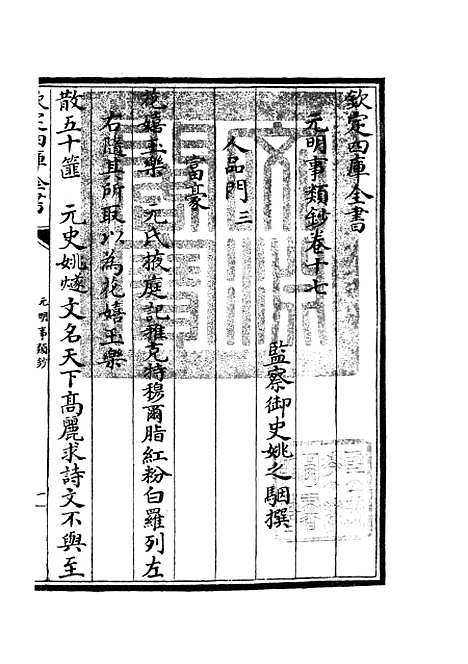 欽定四庫全書
元明事類鈔卷十七
監察御史姚之駰撰
人品門三
富豪
花嬉玉樂　元氏掖庭記雅克特穆爾脂紅粉白羅列左
右隨其所取以為花嬉玉樂
散五十篚　元史姚燧文名天下髙麗求詩文不與至
欽定四庫全書
元明事類鈔